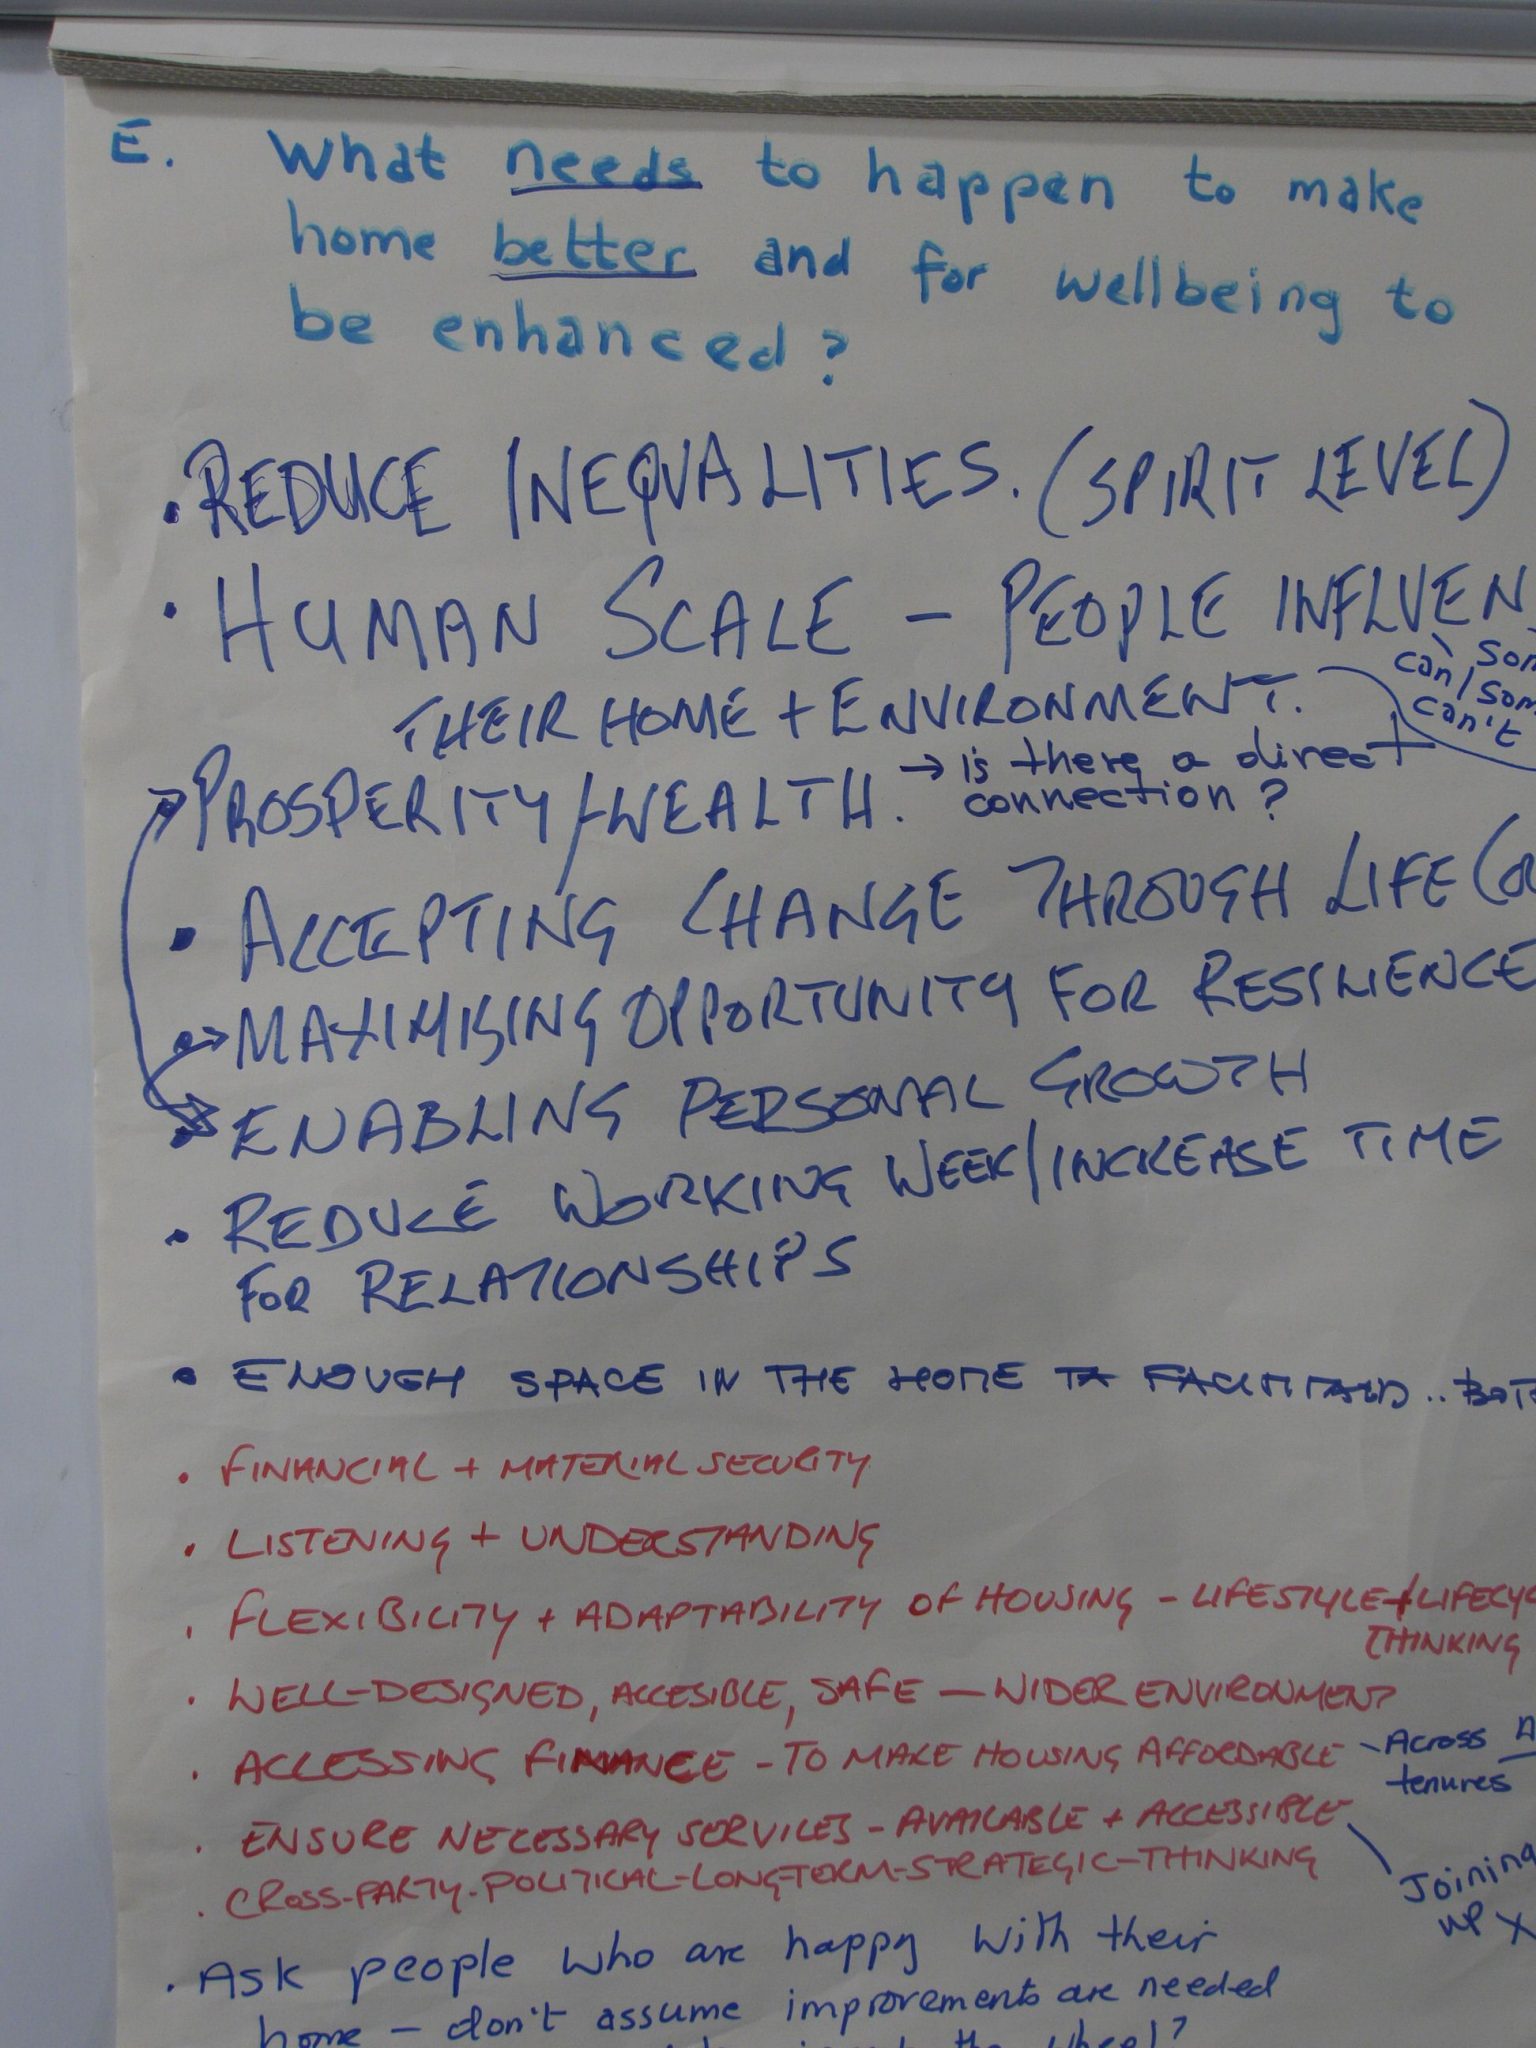 E. What needs to happen to make
home better and for wellbeing to
be enhanced?
• REDUCE INEQUALITIES. (SPIRIT LEVEL)
• HUMAN SCALE - PEOPLE INFLUEN
can / som
can't
THEIR HOME + ENVIRONMENT.
PROSPERITY/WEALTH. → Is there a direct
connection?
• ACCEPTING CHANGE THROUGH LIFE
• MAXIMISING OPPORTUNITY FOR RESILIENCE
• ENABLING PERSONAL GROWTH
• REDUCE WORKING WEEK/INCREASE TIME
FOR RELATIONSHIPS
• ENOUGH SPACE IN THE HOME
• FINANCIAL + MATERIAL SECURITY
• LISTENING + UNDERSTANDING
• FLEXIBILITY + ADAPTABILITY OF HOUSING - LIFESTYLE + LIFECYC
THINKING
• WELL-DESIGNED, ACCESIBLE, SAFE — WIDER ENVIRONMENT
• ACCESSING FINANCE - TO MAKE HOUSING AFFORDABLE - Across
tenures
• ENSURE NECESSARY SERVICES - AVAILABLE + ACCESSIBLE
• CROSS-PARTY-POLITICAL-LONG-TERM-STRATEGIC-THINKING
Joining
up
• Ask people who are happy with their
home - don't assume improvements are needed
the wheel?